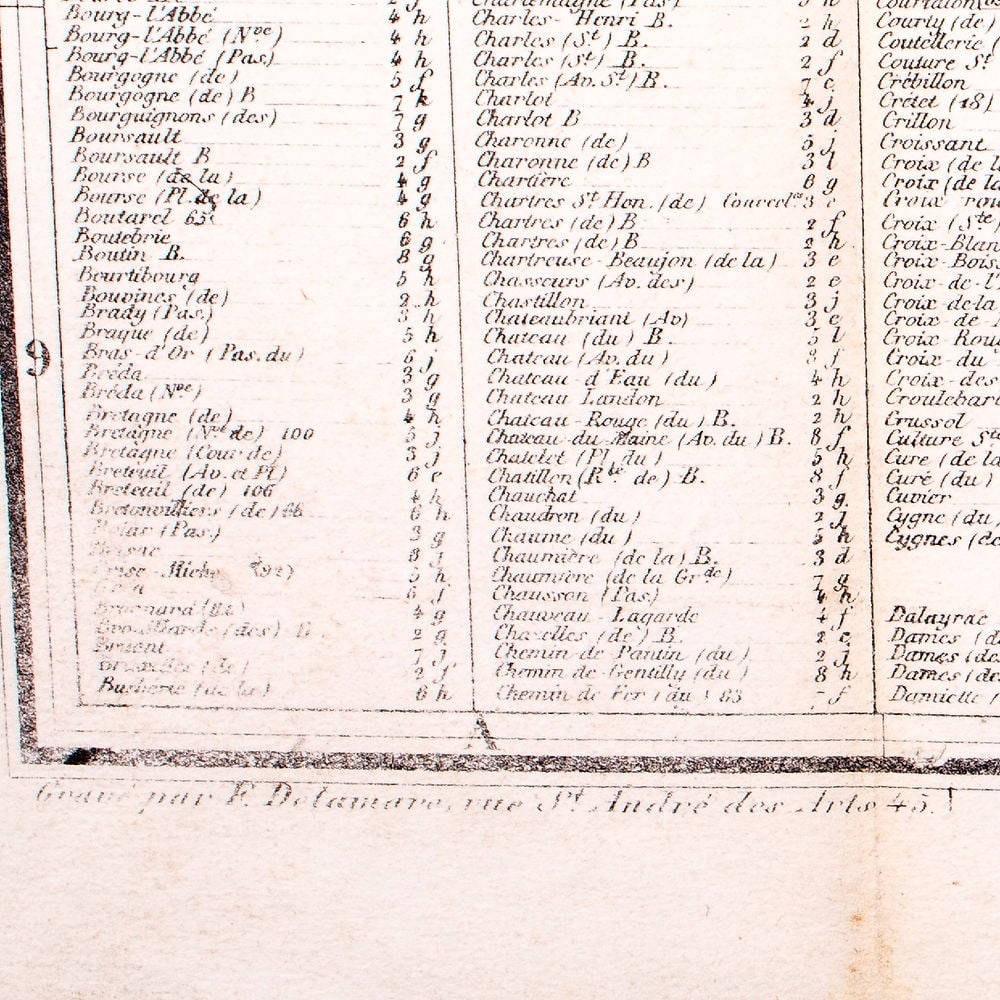 Bourg-l'Abbé 4 h
Bourg-l'Abbé (Nve) 4 h
Bourg-l'Abbé (Pas.) 4 h
Bourgogne (de) 5 f
Bourgogne (de) B 7 k
Bourguignons (des) 7 g
Boursault 3 g
Boursault B 2 f
Bourse (de la) 4 g
Bourse (Pl. de la) 4 g
Boutarel 65 6 h
Boutebrie 6 g
Boutin B. 8 g
Bourtibourg 5 h
Bouvines (de) 2 h
Brady (Pas.) 3 h
Braque (de) 5 h
Bras-d'Or (Pas. du) 6 j
Bréda 3 g
Bréda (Nve) 3 g
Bretagne (de) 4 h
Bretagne (Nve de) 100 5 j
Bretagne (Cour de) 3 j
Breteuil (Av. et Pl) 6 e
Breteuil (de) 106 4 h
Bretonvilliers (de) 66 6 h
(Pas.) 3 g
8 j
Brise-Miche (92) 5 h
6 f
4 g
(des) B 2 g
Brient 7 j
Bruxelles (de) 2 f
(de la) 6 h
Charlemagne (Pas) 5 h
Charles-Henri B. 2 h
Charles (St) B. 2 d
Charles (St) B. 2 f
Charles (Av. St) B. 7 e
Charlot 4 j
Charlot B 3 d
Charonne (de) 5 j
Charonne (de) B 3 l
Chartière 6 g
Chartres St Hon. (de) Courcelles 3 e
Chartres (de) B 2 f
Chartres (de) B 2 h
Chartreuse-Beaujon (de la) 3 e
Chasseurs (Av. des) 2 e
Chastillon 3 j
Chateaubriant (Av) 3 e
Chateau (du) B. 5 l
Chateau (Av. du) 8 f
Chateau-d'Eau (du) 4 h
Chateau Landon 2 h
Chateau-Rouge (du) B. 2 h
Chateau-du-Maine (Av. du) B. 8 f
Chatelet (Pl. du) 5 h
Chatillon (Rte de) B. 8 f
Chauchat 3 g
Chaudron (du) 2 j
Chaume (du) 5 h
Chaumière (de la) B. 3 d
Chaumière (de la Grde) 7 g
Chausson (Pas) 4 h
Chauveau-Lagarde 4 f
Chazelles (de) B. 2 e
Chemin de Pantin (du) 2 j
Chemin de Gentilly (du) 8 h
Chemin de Fer (du) 83 7 f
Courtalon
Courty (de)
Coutellerie
Couture St
Crébillon
Crétet (18)
Crillon
Croissant
Croix (de la
Croix (de la
Croix rou
Croix (Ste
Croix-Blan
Croix-Boiss
Croix-de-l'
Croix-de-la
Croix-de-
Croix-Rou
Croix-du-
Croix-des
Croulebarb
Crussol
Culture Ste
Cure (de la
Curé (du)
Cuvier
Cygne (du)
Cygnes (de
Dalayrac
Dames (de
Dames (des
Dames (des
Damiette (
9
A
Gravé par F. Delamare, rue St. André des Arts 45.